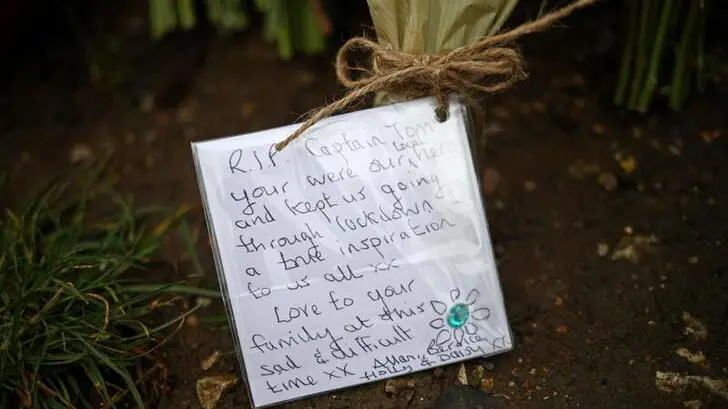 R.I.P. Captain Tom
your were our local hero
and kept us going
through lockdown
a true inspiration
to us all xx
Love to your
family at this
sad & difficult
time xx Allan, Bernice
Holly & Daisy xx